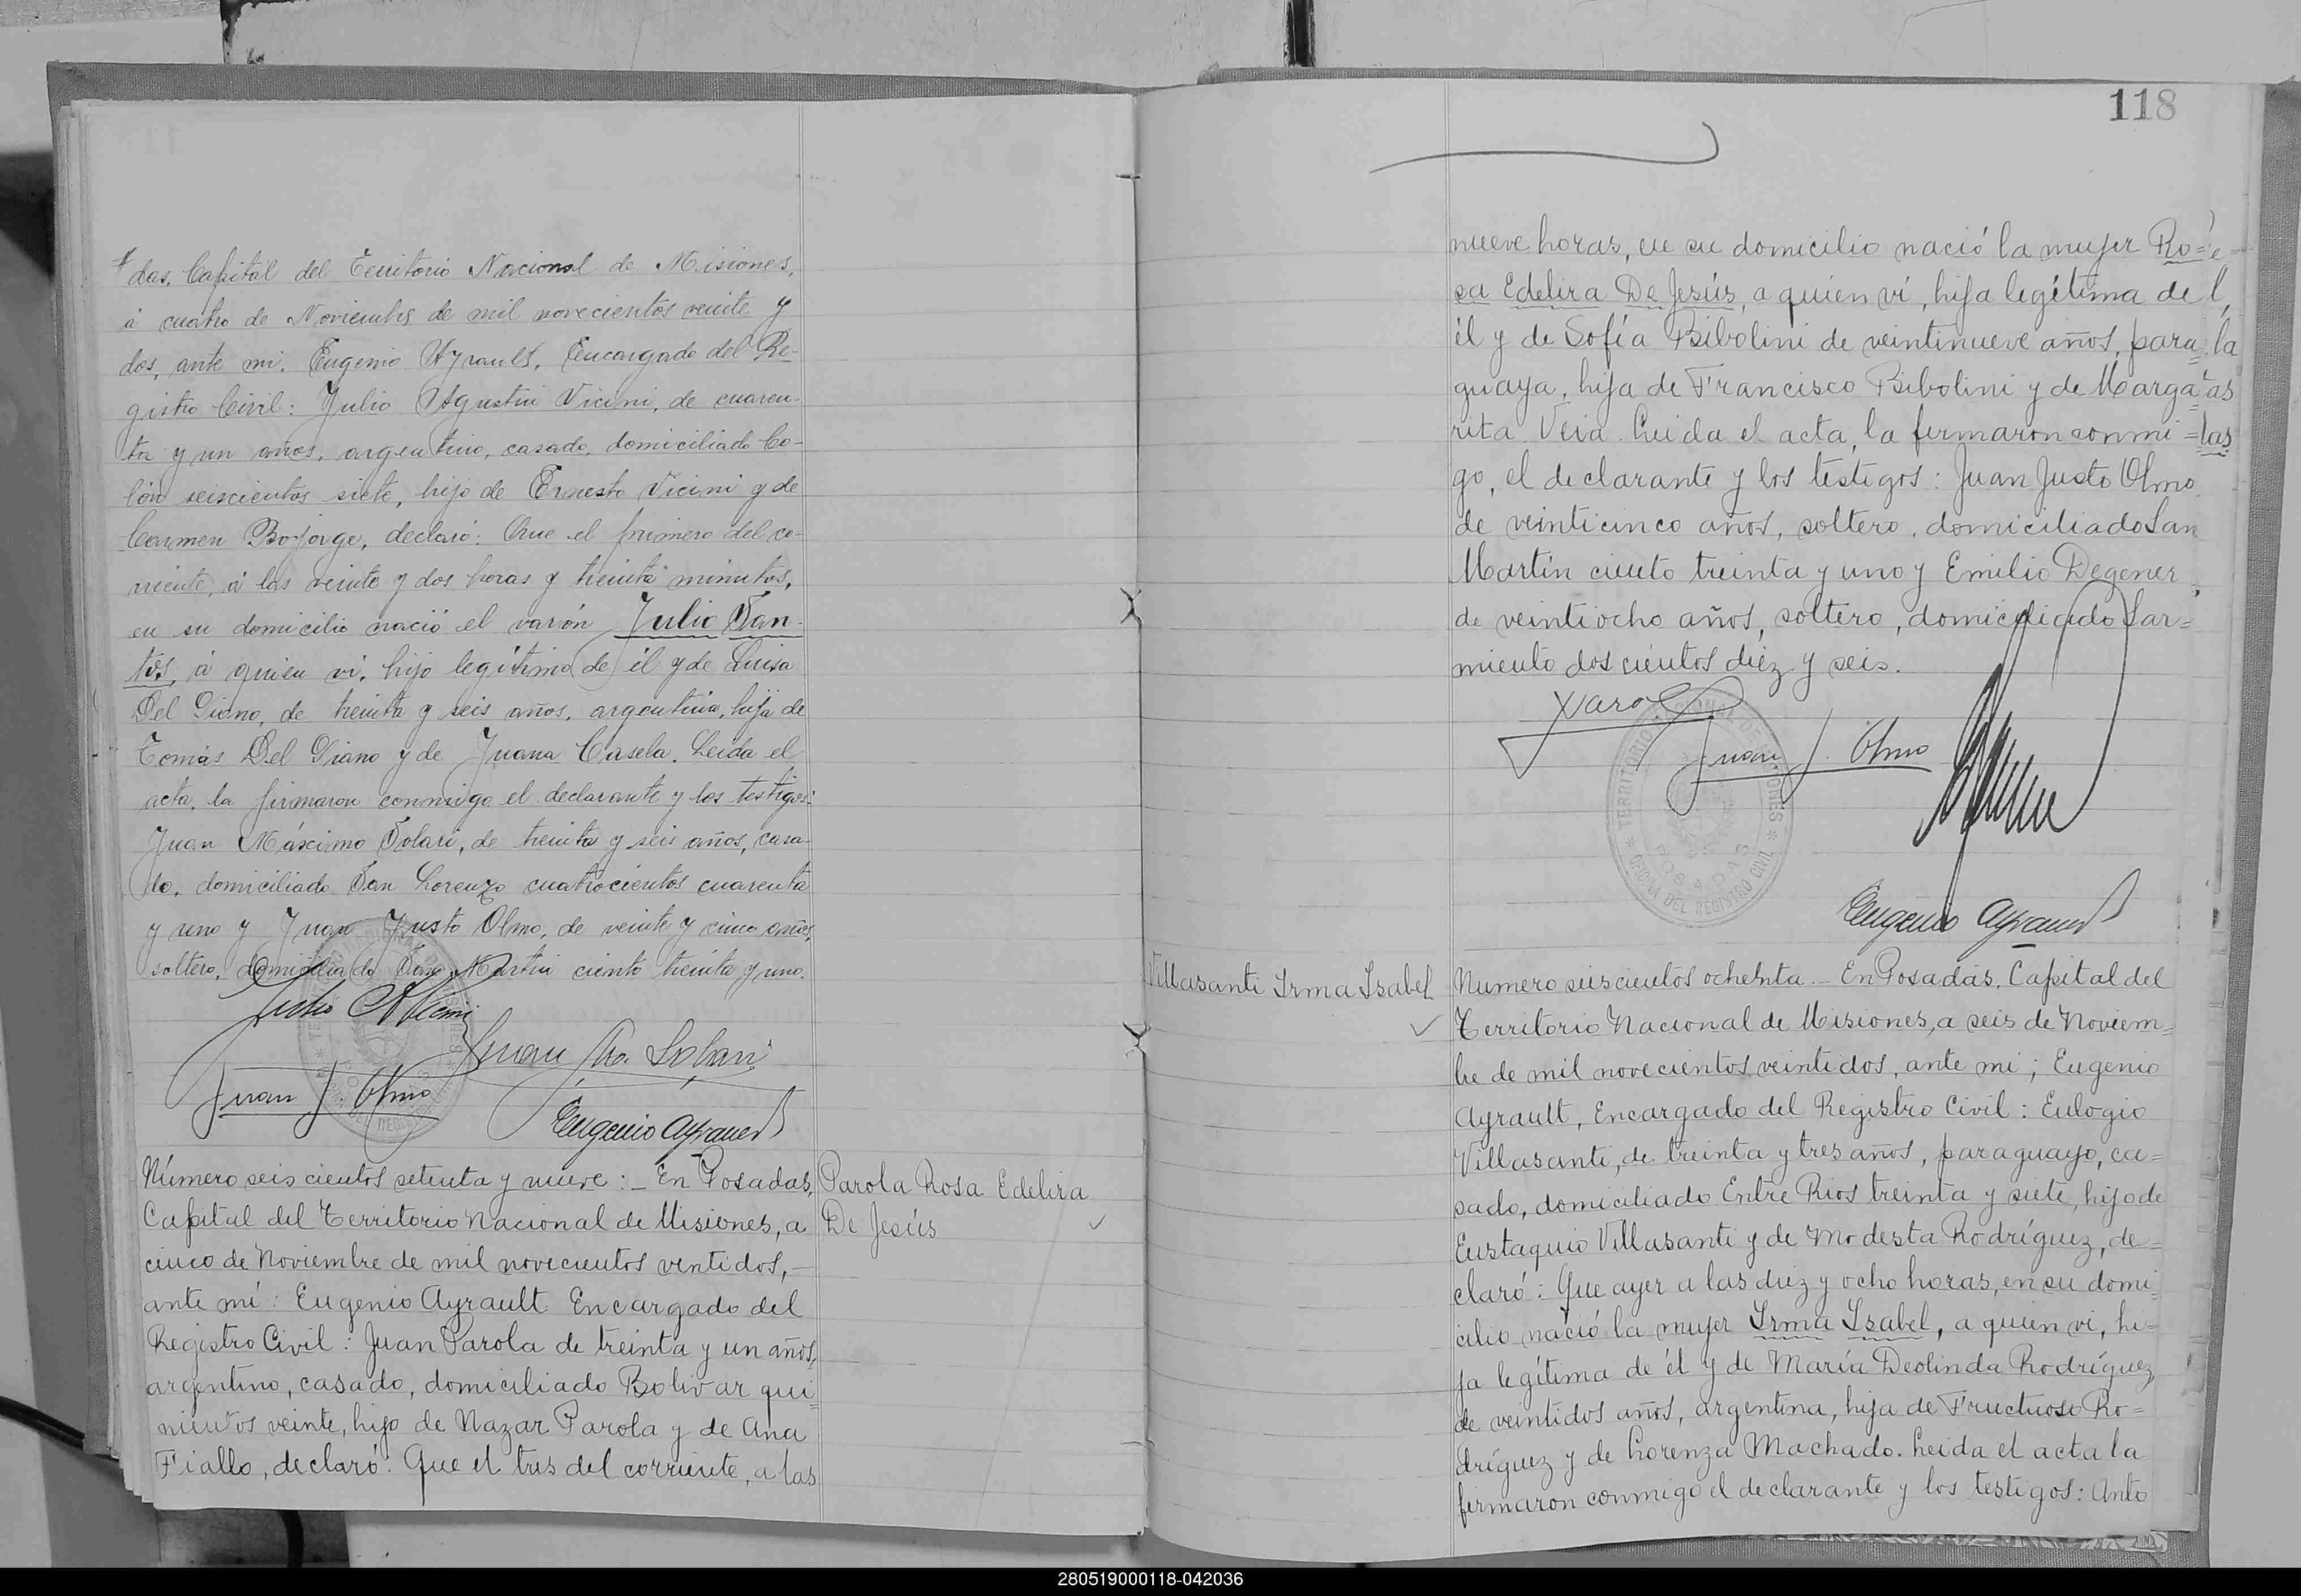 das, Capital del Territorio Nacional de Misiones,
á cuatro de Noviembre de mil novecientos veinte y
dos, ante mi, Eugenio Ayrault, Encargado del Re-
gistro Civil: Julio Agustin Vicini, de cuaren-
ta y un años, argentino, casado, domiciliado Co-
lón seiscientos siete, hijo de Ernesto Vicini y de
Carmen Borjorge, declaró: Que el primero del co-
rriente, á las veinte y dos horas y treinta minutos,
en su domicilio nació el varón Julio San-
tos, á quien vi, hijo legítimo de él y de Luisa
Del Giano, de treinta y seis años, argentina, hija de
Tomás Del Giano y de Juana Casela. Leida el
acta, la firmaron conmigo el declarante y los testigos:
Juan Máximo Solari, de treinta y seis años, casa-
do, domiciliado San Lorenzo cuatrocientos cuarenta
y uno y Juan Justo Olmo, de veinte y cinco años,
soltero, domiciliado San Martin ciento treinta y uno.
Julio A Vicini
Juan Mo. Solari
Juan J. Olmo
Eugenio Ayrault
Número seis cientos setenta y nueve: _ En Posadas,
Capital del Territorio Nacional de Misiones, a
cinco de Noviembre de mil novecientos ventidos, -
ante mí: Eugenio Ayrault Encargado del
Registro Civil: Juan Parola de treinta y un años,
argentino, casado, domiciliado Bolivar qui=
nientos veinte, hijo de Nazar Parola y de Ana
Fiallo, declaró: Que el tres del corriente, a las
Parola Rosa Edelira
De Jesús
118
nueve horas, en su domicilio nació la mujer Ro=
sa Edelira De Jesús, a quien vi, hija legítima de
él y de Sofía Bibolini de veintinueve años, para=
guaya, hija de Francisco Bibolini y de Marga=
rita Veia. Leida el acta, la firmaron conmi=
go, el declarante y los testigos: Juan Justo Olmo
de veinticinco años, soltero, domiciliado San
Martín ciento treinta y uno y Emilio Degener,
de veintiocho años, soltero, domiciliado Sar=
miento dos cientos diez y seis.
Juan J. Olmo
TERRITORIO NACIONAL DE MISIONES
POSADAS
OFICINA DEL REGISTRO CIVIL
Eugenio Ayrault
Villasanti Irma Isabel
Numero seiscientos ochenta _ En Posadas, Capital del
Territorio Nacional de Misiones, a seis de Noviem=
bre de mil novecientos veintidos, ante mi; Eugenio
Ayrault, Encargado del Registro Civil: Eulogio
Villasanti, de treinta y tres años, paraguayo, ca=
sado, domiciliado Entre Rios treinta y siete, hijo de
Eustaquio Villasanti y de Modesta Rodríguez, de=
claró: Que ayer a las diez y ocho horas, en su domi=
cilio nació la mujer Irma Isabel, a quien vi, hi=
ja legítima de él y de María Deolinda Rodríguez,
de veintidos años, argentina, hija de Fructuoso Ro=
dríguez y de Lorenza Machado. Leida el acta la
firmaron conmigo el declarante y los testigos: Anto
280519000118-042036